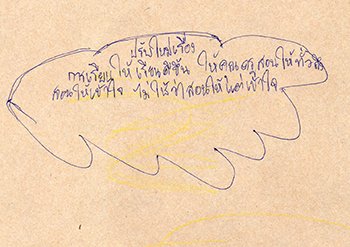 ปรับใหม่เรื่อง
การเรียน ให้เรียนดีขึ้น ให้คุณครูสอนให้ทั่วถึง
สอนให้เข้าใจ ไม่ใช่ว่าสอนให้แค่เข้าใจ